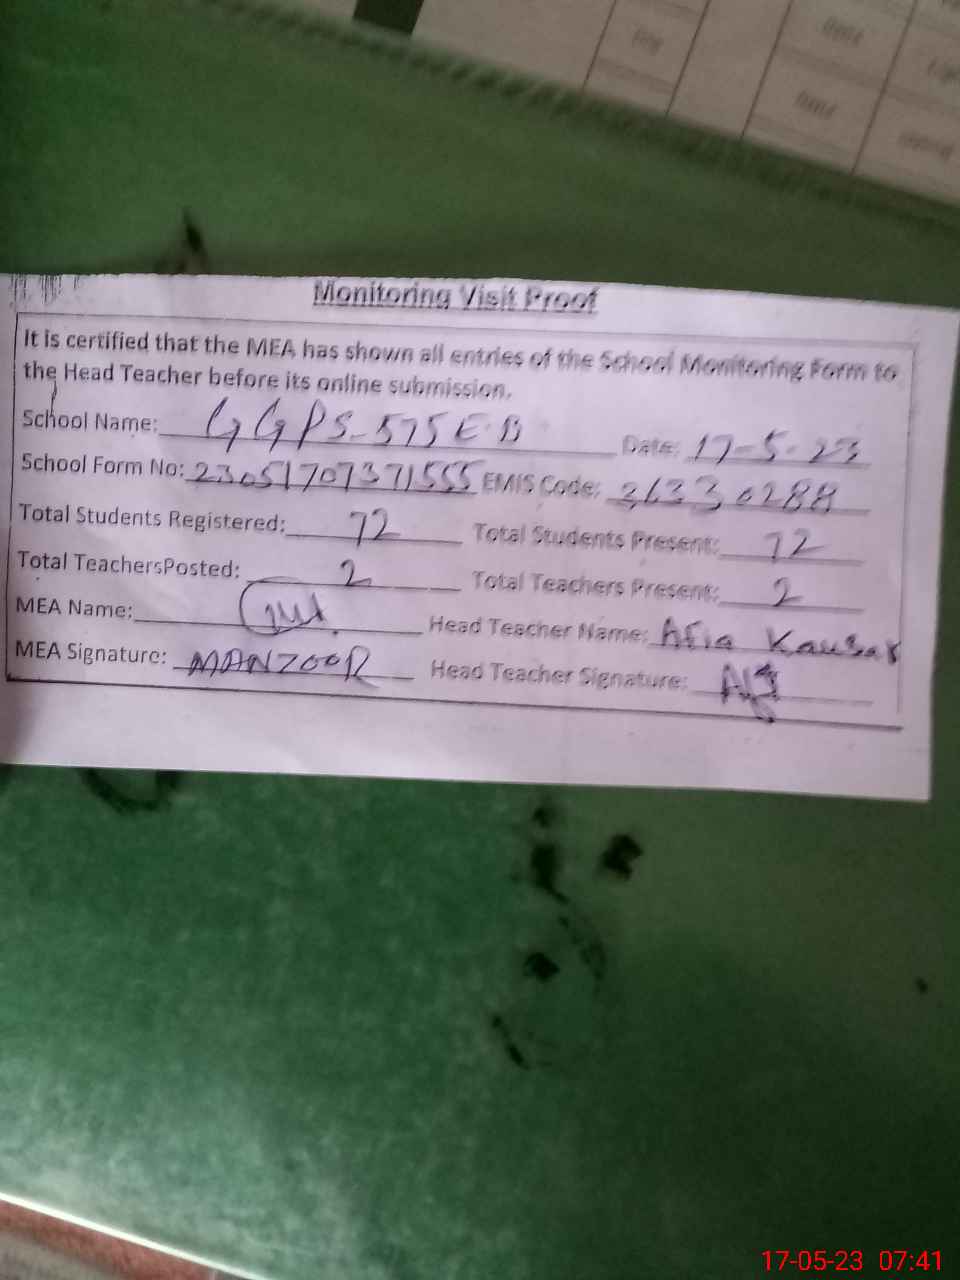 Monitoring Visit Proof
It is certified that the MEA has shown all entries of the School Monitoring Form to
the Head Teacher before its online submission.
School Name: GGPS-575 E.B Date: 17-5-23
School Form No: 23051707371555 EMIS Code: 36330288
Total Students Registered: 72 Total Students Present: 72
Total TeachersPosted: 2 Total Teachers Present: 2
MEA Name: Head Teacher Name: Afia Kausar
MEA Signature: MANZOOR Head Teacher Signature:
17-05-23 07:41